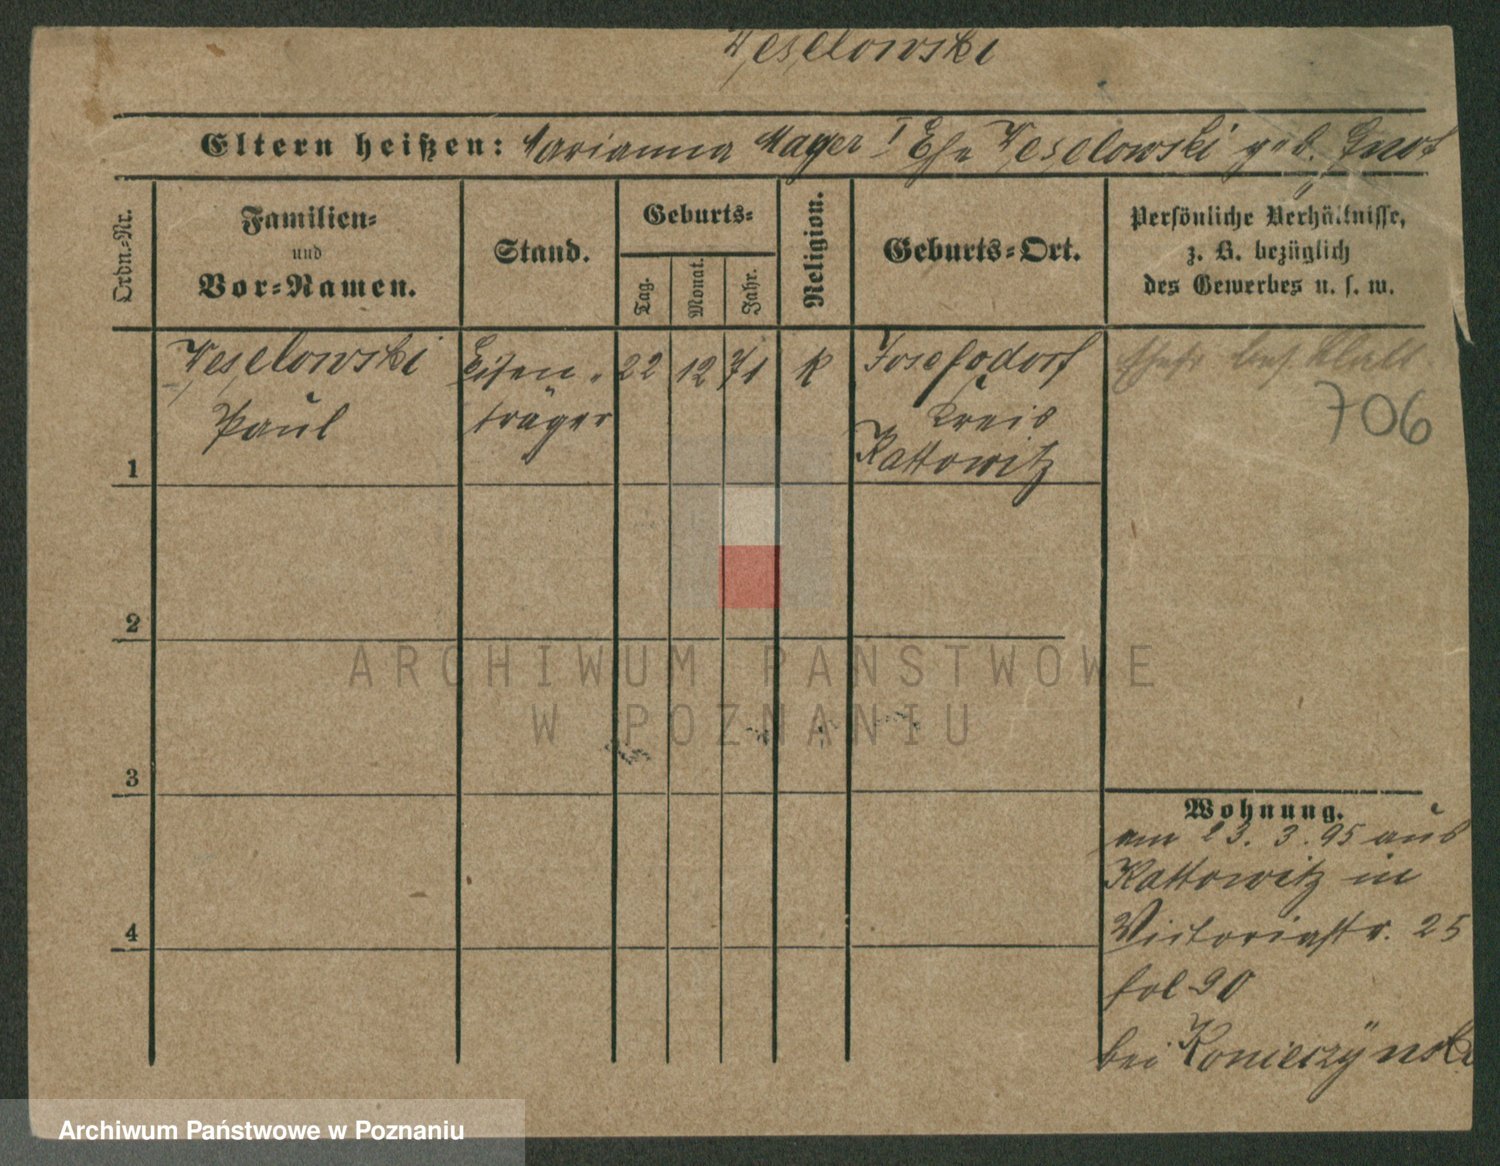 Weselowski
Eltern heißen: Marianna Mager I Ehe Weselowski geb. Gnot
Ordn.-Nr.
Familien-
und
Vor-Namen.
Stand.
Geburts-
Tag.
Monat.
Jahr.
Religion.
Geburts-Ort.
Persönliche Verhältnisse,
z. B. bezüglich
des Gewerbes u. s. w.
1
Weselowski
Paul
Eisen-
träger
22
12
71
K
Josefsdorf
Kreis
Kattowitz
706
2
3
4
Wohnung.
am 23. 3. 95 aus
Kattowitz in
Victoriastr. 25
fol 90
bei Konieczynski
ARCHIWUM PAŃSTWOWE
W POZNANIU
Archiwum Państwowe w Poznaniu